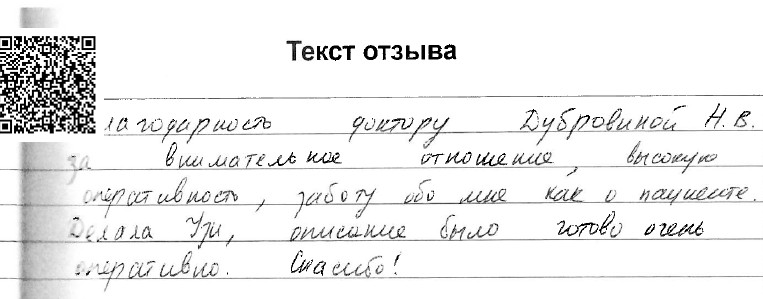 Текст отзыва
лагодарность доктору Дубровиной Н.В.
за внимательное отношение, высокую
оперативность, заботу обо мне как о пациенте.
Делала Узи, описание было готово очень
оперативно. Спасибо!